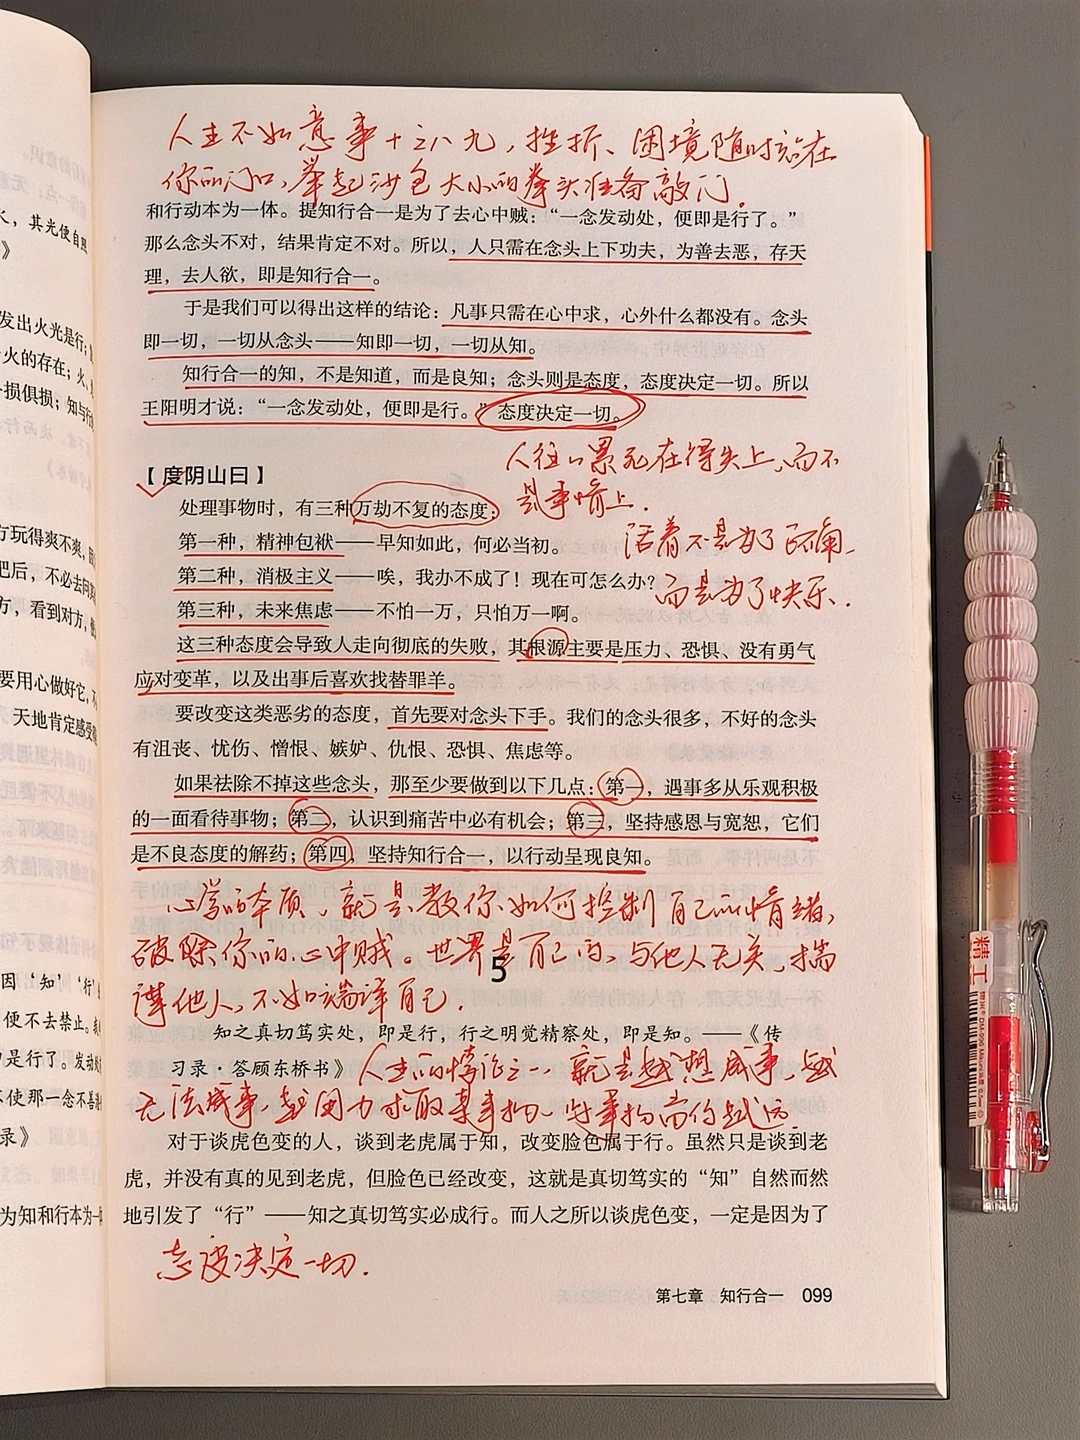 人生不如意事十之八九，挫折、困境随时站在
你的门口，举起沙包大小的拳头准备敲门.
和行动本为一体。提知行合一是为了去心中贼：“一念发动处，便即是行了。”
那么念头不对，结果肯定不对。所以，人只需在念头上下功夫，为善去恶，存天
理，去人欲，即是知行合一。
于是我们可以得出这样的结论：凡事只需在心中求，心外什么都没有。念头
即一切，一切从念头——知即一切，一切从知。
知行合一的知，不是知道，而是良知；念头则是态度，态度决定一切。所以
王阳明才说：“一念发动处，便即是行。”态度决定一切。
人往往累死在得失上，而不
是事情上.
【度阴山曰】
处理事物时，有三种万劫不复的态度：
活着不是为了正确，
第一种，精神包袱——早知如此，何必当初。
第二种，消极主义——唉，我办不成了！现在可怎么办？
而是为了快乐.
第三种，未来焦虑——不怕一万，只怕万一啊。
这三种态度会导致人走向彻底的失败，其根源主要是压力、恐惧、没有勇气
应对变革，以及出事后喜欢找替罪羊。
要改变这类恶劣的态度，首先要对念头下手。我们的念头很多，不好的念头
有沮丧、忧伤、憎恨、嫉妒、仇恨、恐惧、焦虑等。
如果祛除不掉这些念头，那至少要做到以下几点：第一，遇事多从乐观积极
的一面看待事物；第二，认识到痛苦中必有机会；第三，坚持感恩与宽恕，它们
是不良态度的解药；第四，坚持知行合一，以行动呈现良知。
心学的本质，就是教你如何控制自己的情绪，
破除你的心中贼。世界是自己的，与他人无关，揣
5
谋他人，不如端详自己.
知之真切笃实处，即是行，行之明觉精察处，即是知。——《传
习录·答顾东桥书》
人生的悖论之一，就是越想成事，越
无法成事，越用力求取某事物，些事物离你越远.
对于谈虎色变的人，谈到老虎属于知，改变脸色属于行。虽然只是谈到老
虎，并没有真的见到老虎，但脸色已经改变，这就是真切笃实的“知”自然而然
地引发了“行”——知之真切笃实必成行。而人之所以谈虎色变，一定是因为了
态度决定一切.
第七章 知行合一 099